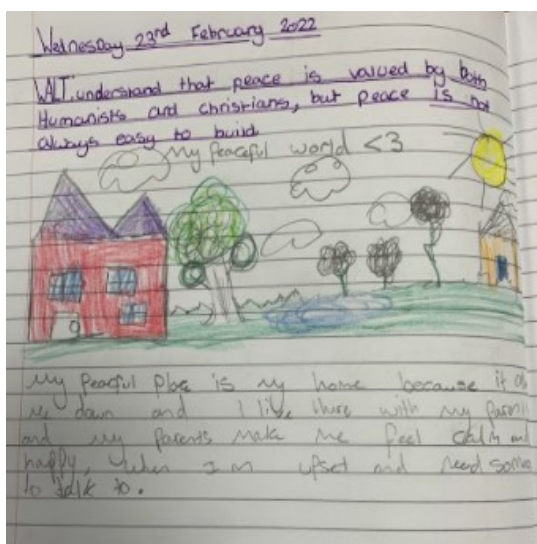 Wednesday 23rd February 2022
WALT: understand that peace is valued by both
Humanists and christians, but peace is not
always easy to build
My peaceful world <3
My Peaceful place is my home because it
me down and I live there with my
and my Parents make me feel calm and
happy, when I m upset and need
to talk to.